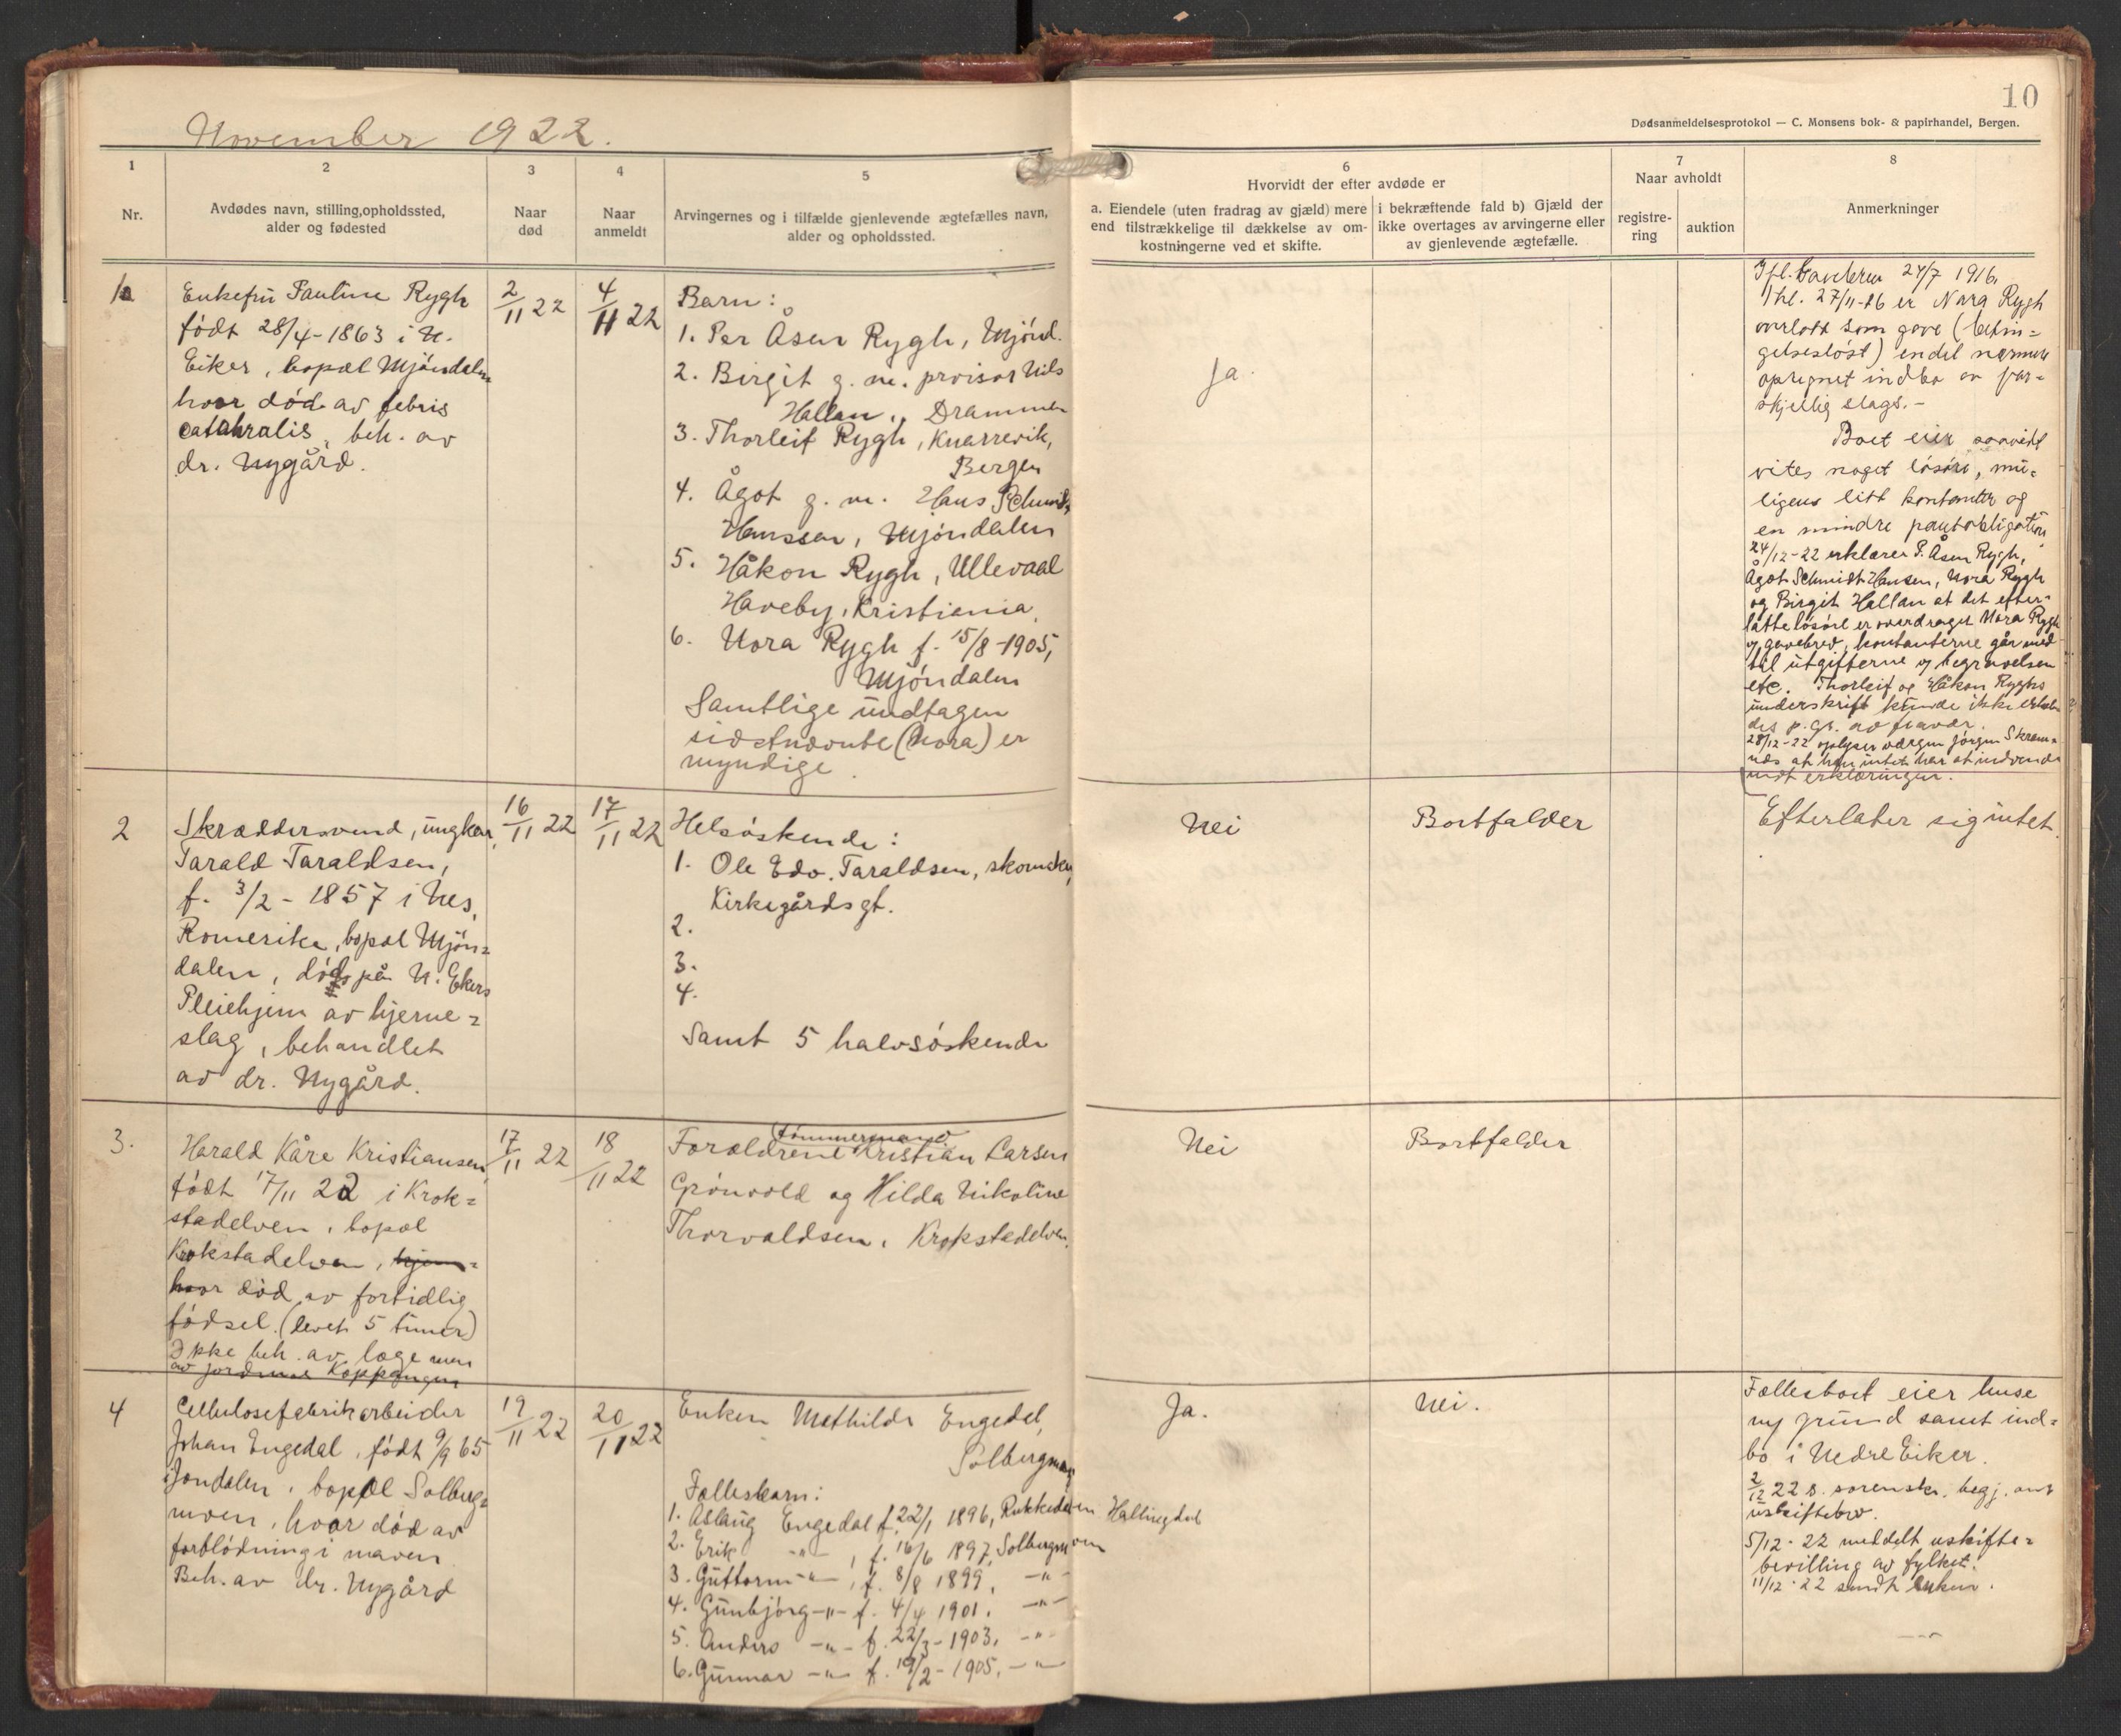 November 1922.
10
Dødsanmeldelsesprotokol — C. Monsens bok- & papirhandel, Bergen.
1
Nr.
2
Avdødes navn, stilling, opholdssted,
alder og fødested
3
Naar
død
4
Naar
anmeldt
5
Arvingernes og i tilfælde gjenlevende ægtefælles navn,
alder og opholdssted.
6
Hvorvidt der efter avdøde er
a. Eiendele (uten fradrag av gjæld) mere
end tilstrækkelige til dækkelse av om-
kostningerne ved et skifte.
i bekræftende fald b) Gjæld der
ikke overtages av arvingerne eller
av gjenlevende ægtefælle.
7
Naar avholdt
registre-
ring
auktion
8
Anmerkninger
1
Enkefru Pauline Rygh
født 28/4-1863 i N.
Eiker, bopæl Mjøndalen
hvor død av febris
catahralis, beh. av
dr. Nygård.
2/11 22
4/11 22
Barn:
1. Per Åsen Rygh, Mjønd.
2. Birgit g. m. provisor Nils
Hallan, Drammen
3. Thorleif Rygh, Knarrevik,
Bergen
4. Ågot g. m. Hans Schmidt
Hanssen, Mjøndalen
5. Håkon Rygh, Ullevaal
Haveby, Kristiania.
6. Nora Rygh f. 15/8-1905,
Mjøndalen
Samtlige undtagen
sidstnævnte (Nora) er
myndige.
Ja.
27/7 1916,
thl. 27/11-16 er Nora Rygh
overlatt som gave (betin=
gelsesløst) endel nærmere
opregnet indbo av for=
skjellig slags.-
Boet eier saavidt
vites noget løsøre, mu=
ligens litt kontanter og
en mindre pantobligation
24/12-22 erklærer P. Åsen Rygh,
Ågot Schmidt Hansen, Nora Rygh
og Birgit Hallan at det efter-
latte løsøre er overdraget Nora Rygh
v/ gavebrev, kontanterne går med
til utgifterne v/ begravelsen
etc. Thorleif og Håkon Ryghs
underskrift kunde ikke erholdes
p. gr. av fravær.
28/12-22 oplyser værgen Jørgen Skram=
næs at han intet har at indvende
mot erklæringen.
2
Skræddersvend, ungkar,
Tarald Taraldsen,
f. 3/2 - 1857 i Nes,
Romerike, bopæl Mjøn=
dalen, død på N. Ekers
Pleiehjem av hjerne=
slag, behandlet
av dr. Nygård.
16/11 22
17/11 22
Helsøskende:
1. Ole Edv. Taraldsen, skomaker,
Kirkegårdsgt.
2.
3.
4.
Samt 5 halvsøskende
Nei
Bortfalder
Efterlater sig intet.
3.
Harald Kåre Kristiansen,
født 17/11 22 i Krok=
stadelven, bopæl
Krokstadelven, hjem=
hvor død av fortidlig
fødsel. (levet 5 timer)
Ikke beh. av læge men
av jordmor Koppangen
17/11 22
18/11 22
tømmermand
Forældrene Kristian Larsen
Grønvold og Hilda Nikoline
Thorvaldsen, Krokstadelven.
Nei
Bortfalder
4
Cellulosefabrikarbeider
Johan Engedal, født 9/9 65
i Jondalen, bopæl Solberg=
moen, hvor død av
forblødning i maven.
Beh. av dr. Nygård
19/11 22
20/11 22
Enken Mathilde Engedal,
Solbergmoen
Fællesbarn:
1. Aslaug Engedal f. 22/1 1896, Rukkedalen Hallingdal
2. Erik -"-, f. 16/6 1897, Solbergmoen
3. Guttorm -"-, f. 8/8 1899, -"-
4. Gunbjørg -"- f. 4/4 1901, -"-
5. Anders -"- f. 22/3-1903, -"-
6. Gunnar -"- f. 19/2-1905, -"-
Ja.
Nei.
Fællesboet eier huse
og grund samt ind=
bo i Nedre Eiker.
2/12 22 s. sorenskr. begj. om
uskiftebev.
5/12-22 meddelt uskifte=
bevilling av fylket.
11/12-22 sendt enken.